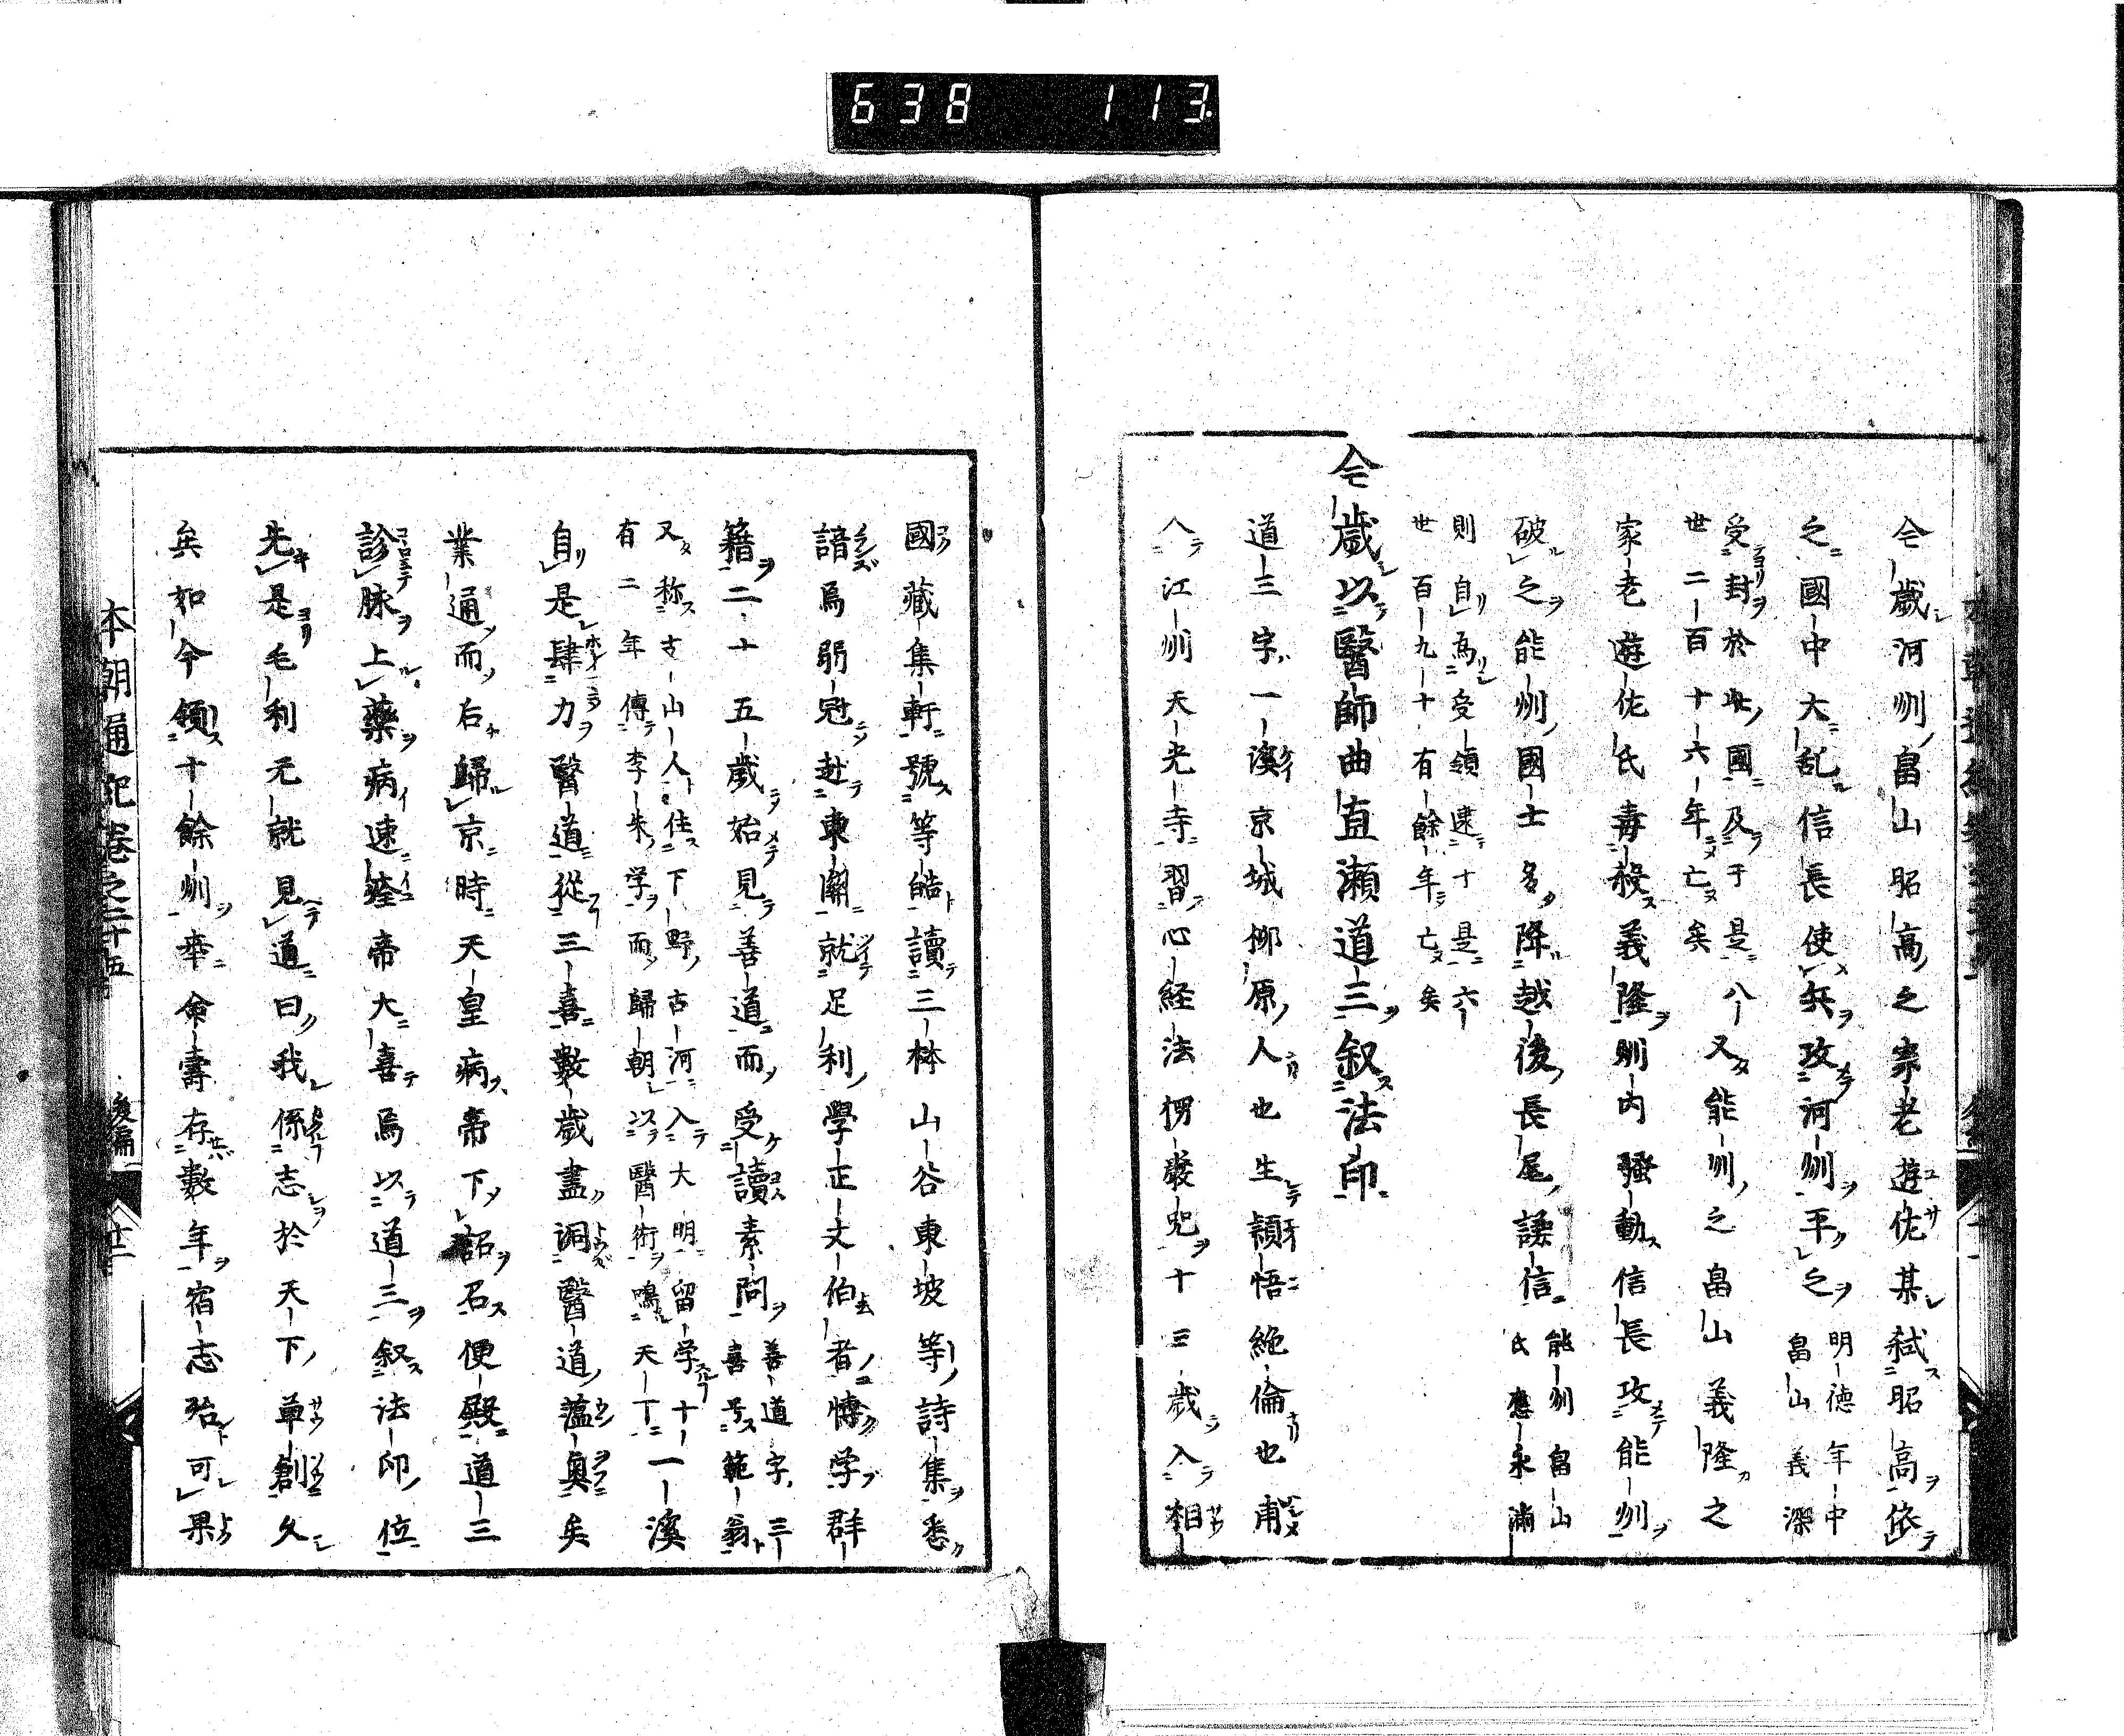 638 113
今歳河州畠山昭高之宗老遊佐某弑昭高依
之國中大乱信長使兵攻河州平之 明德年中
畠山義深
受封於此國及于是八
世二百十六年亡矣
又能州之畠山義隆之
家老遊佐氏毒殺義隆則内騒動信長攻能州
破之能州國士多降越後長尾謙信 能州畠山
氏應永滿
則自為受領逮于是六
世百九十有餘年亡矣
今歳以醫師曲直瀬道三叙法印
道三字一溪京城柳原人也生穎悟絶倫也甫
八江州天光寺習心経法楞嚴咒十三歳入相
國藏集軒號等皓讀三体山谷東坡等詩集悉
諳焉弱冠赴東關就足利學正文伯者博学群
籍二十五歳始見善道而受讀素問 善道字三
喜号範翁
又称支山人住下野古河入大明留学十
有二年傳李朱学而歸朝以醫術鳴天下
一溪
自是肆力醫道從三喜數歳盡洞醫道薀奧矣
業通而后歸京時天皇病帝下詔召便殿道三
診脉上藥病速痊帝大喜焉以道三叙法印位
先是毛利元就見道曰我係志於天下草創久
矣如今領十餘州幸命壽存數年宿志殆可果
本朝通紀卷之二十五 後編 廿二